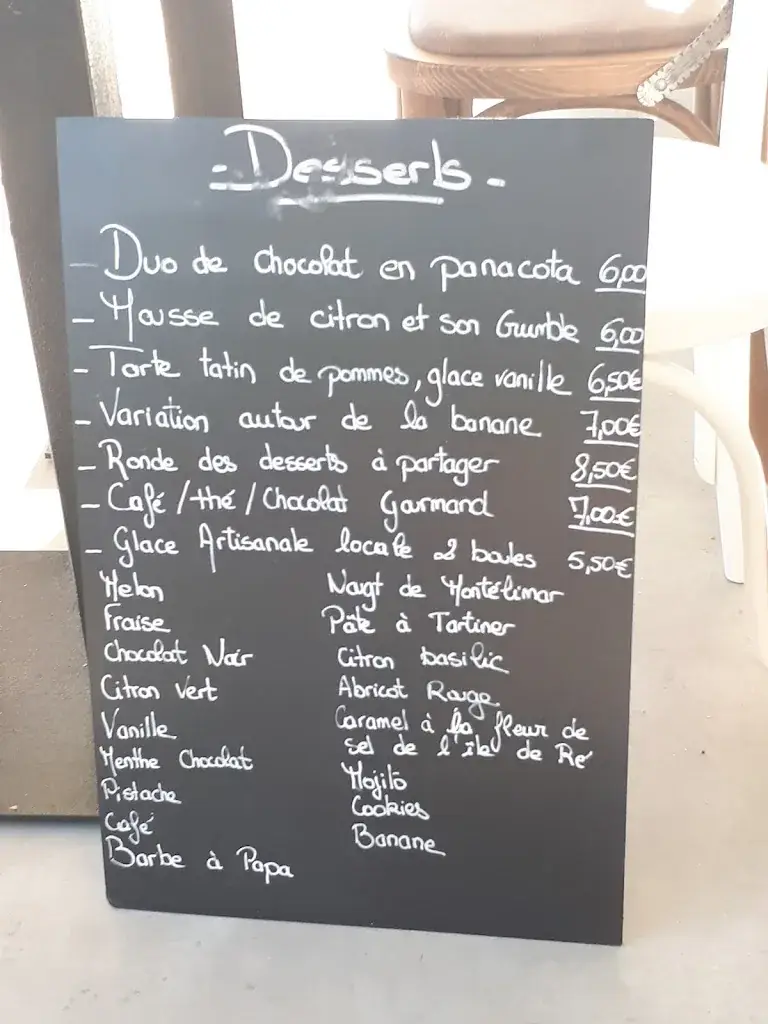 - Desserts -
- Duo de chocolat en panacota 6,00
- Mousse de citron et son Crumble 6,00
- Tarte tatin de pommes, glace vanille 6,50€
- Variation autour de la banane 7,00€
- Ronde des desserts à partager 8,50€
- Café / thé / Chocolat Gourmand 7,00€
- Glace Artisanale locale 2 boules 5,50€
Melon Nougt de Montélimar
Fraise Pâte à Tartiner
Chocolat Noir Citron basilic
Citron Vert Abricot Rouge
Vanille Caramel à la fleur de
sel de l'île de Ré
Menthe Chocolat Mojito
Pistache Cookies
Café Banane
Barbe à Papa